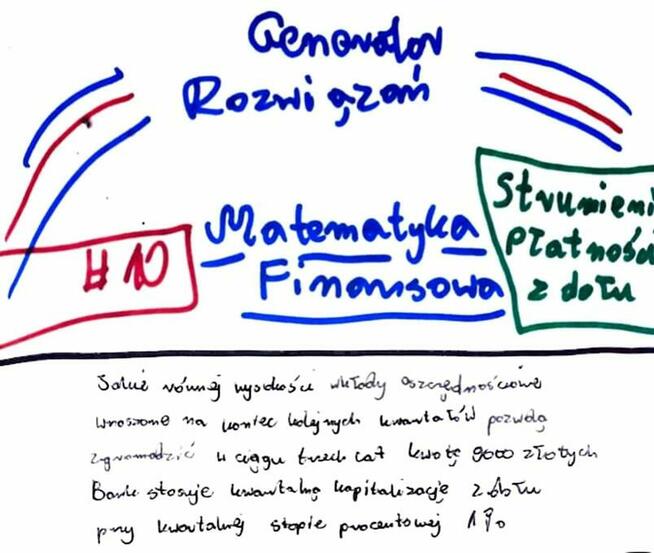 Generator
Rozwiązań
#10
Matematyka
Finansowa
Strumieni
Płatności
z dołu
Jakiej równej wysokości wkłady oszczędnościowe
wnoszone na koniec kolejnych kwartałów pozwolą
zgromadzić w ciągu trzech lat kwotę 9000 złotych
Bank stosuje kwartalną kapitalizację z dołu
przy kwartalnej stopie procentowej 1%